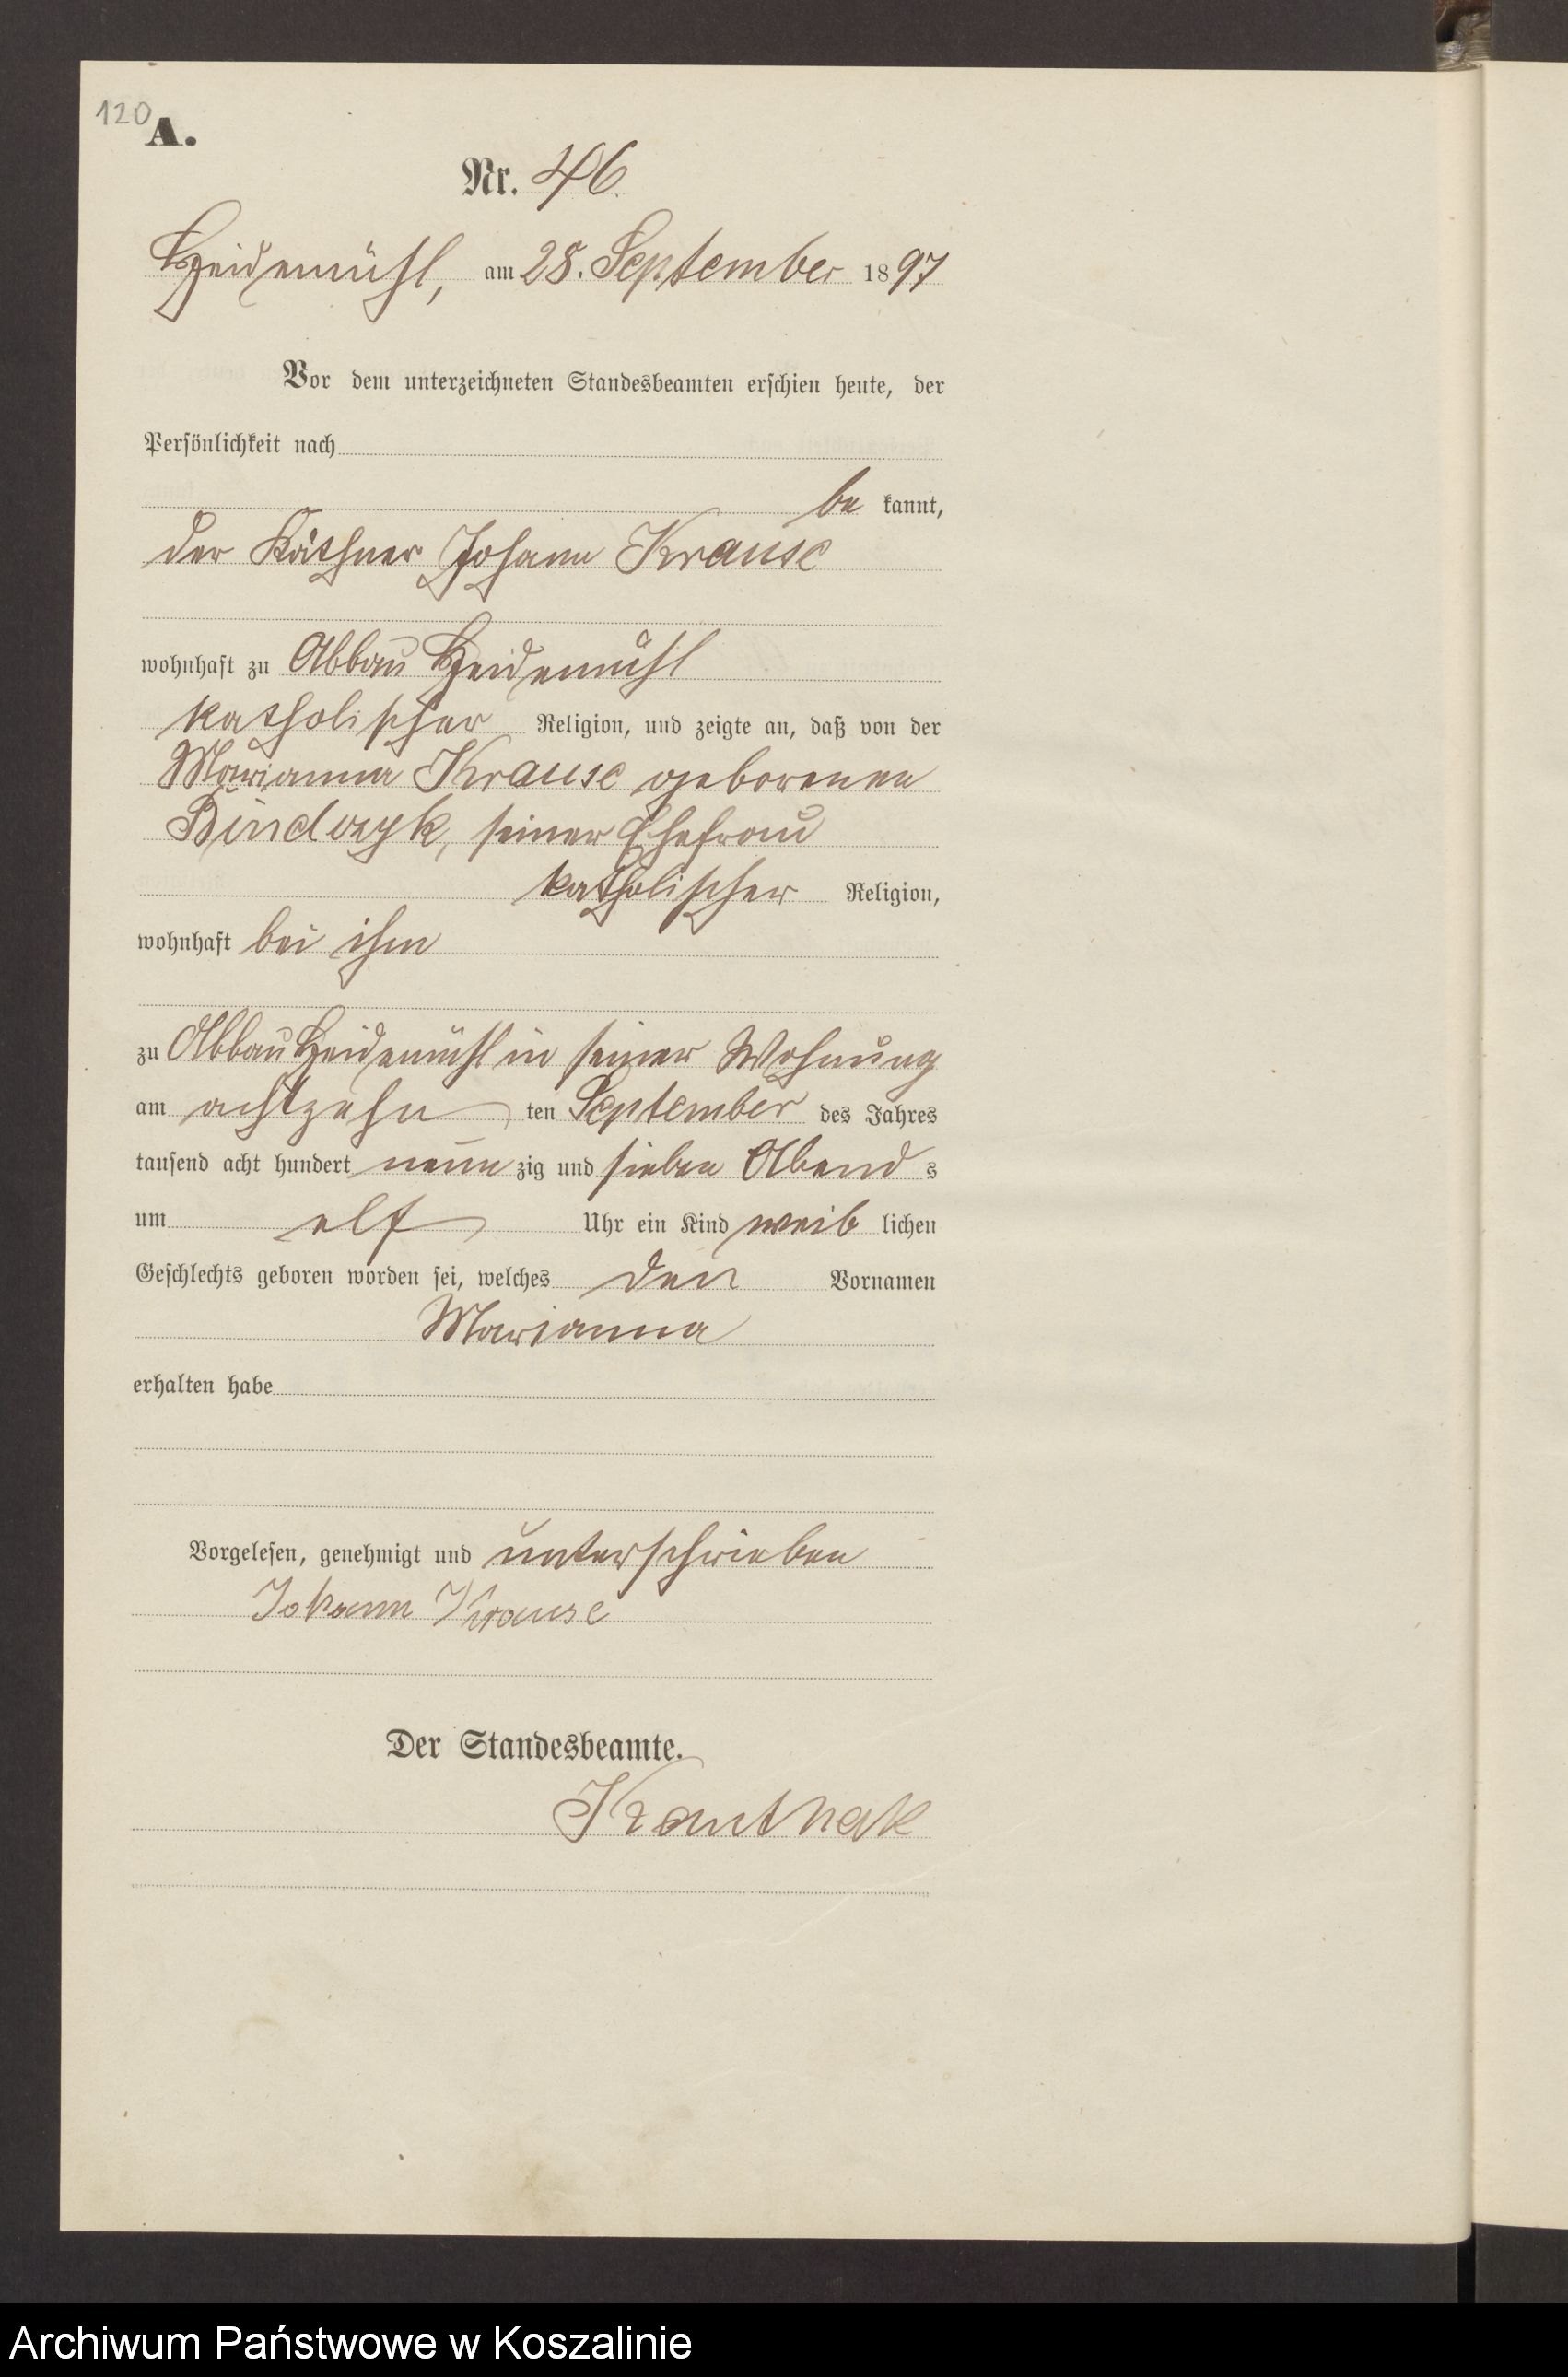 120
A.
Nr. 46.
Heidemühl, am 28. September 1897
Vor dem unterzeichneten Standesbeamten erschien heute, der
Persönlichkeit nach
be kannt,
der Käthner Johann Krause
wohnhaft zu Abbau Heidemühl
katholischer Religion, und zeigte an, daß von der
Marianna Krause geborenen
seiner Ehefrau
katholischer Religion,
wohnhaft bei ihm
zu Abbau Heidemühl in seiner Wohnung
am achtzehn ten September des Jahres
tausend acht hundert neun zig und sieben Abend s
um elf Uhr ein Kind weib lichen
Geschlechts geboren worden sei, welches den Vornamen
Marianna
erhalten habe
Vorgelesen, genehmigt und unterschrieben
Johann Krause
Der Standesbeamte.
Archiwum Państwowe w Koszalinie